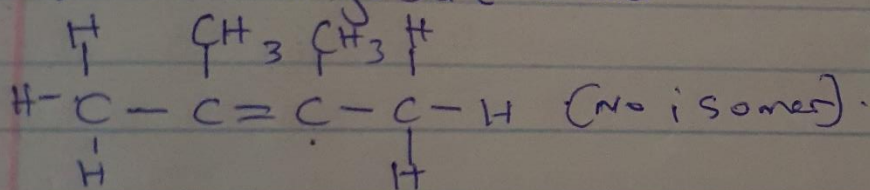 H CH3 CH3 H
H-C-C=C-C-H (No isomer).
H H